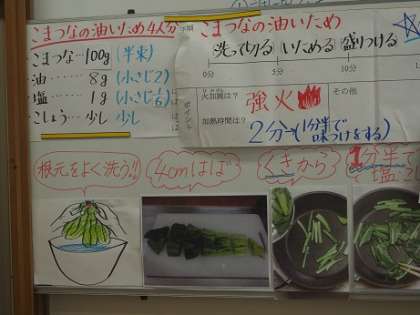 こまつなの油いため4人分
こまつな…100g(半束)
油……8g(小さじ2)
塩……1g(小さじ1/6)
こしょう…少し 少し
こまつなの油いため
洗って切る いためる 盛りつける
0分 5分 10分
火加減は? 強火 その他
ポイント
加熱時間は? 2分→(1分半で味つけをする)
根元をよく洗う!!
4cmはば
くきから
1分半で
塩: